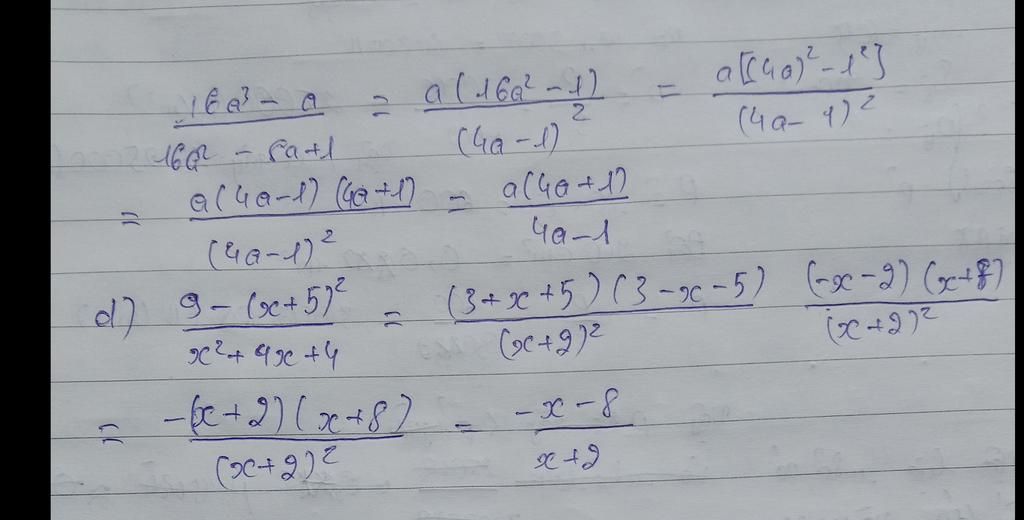 (16a³ - a)/(16a² - 8a+1) = a(16a² - 1)/(4a-1)² = a[(4a)² - 1²]/(4a-1)²
= a(4a-1)(4a+1)/(4a-1)² = a(4a+1)/(4a-1)
d) (9-(x+5)²)/(x²+4x+4) = (3+x+5)(3-x-5)/(x+2)² (-x-2)(x+8)/(x+2)²
= -(x+2)(x+8)/(x+2)² = (-x-8)/(x+2)